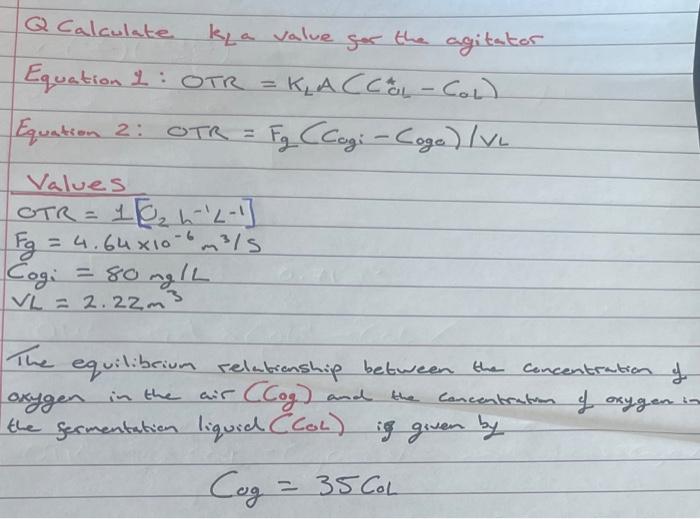 Q Calculate kLa value for the agitator
Equation 1: OTR = KLA (C*OL - COL)
Equation 2: OTR = Fg (Cogi - Cogo) / VL
Values
OTR = 1 [O2 h-1 L-1]
Fg = 4.64 x10-6 m3/s
Cogi = 80 mg/L
VL = 2.22m3
The equilibrium relationship between the concentration of
oxygen in the air (Cog) and the concentration of oxygen in
the fermentation liquid (COL) is given by
Cog = 35 COL